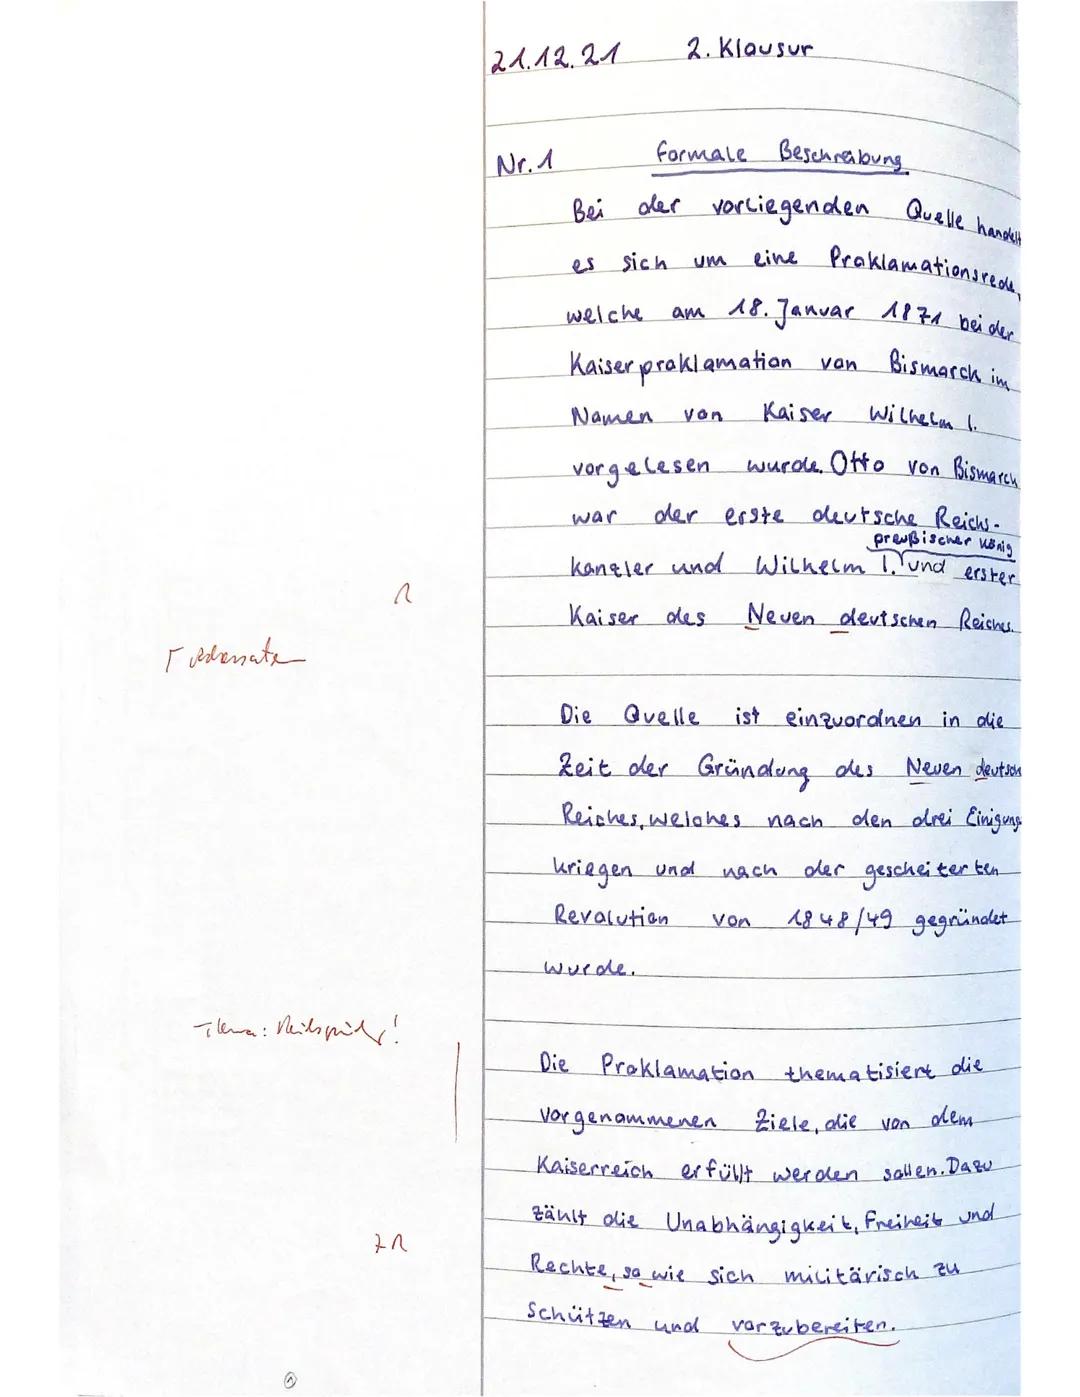 21.12.21 2. Klausur
Nr. 1 formale Beschreibung
Bei der vorliegenden Quelle handelt
es sich um eine Proklamationsrede,
welche am 18. Januar 1871 bei der
Kaiserproklamation von Bismarck im
Namen von Kaiser Wilhelm I.
vorgelesen wurde. Otto von Bismarck
war der erste deutsche Reichs-
preußischer König
kanzler und Wilhelm I. und erster
R
Kaiser des Neuen deutschen Reiches.
Γ Adressaten
Die Quelle ist einzuordnen in die
Zeit der Gründung des Neuen deutschen
Reiches, welches nach den drei Einigungs
kriegen und nach der gescheiterten
Revolution von 1848/49 gegründet
wurde.
Thema:
Die Proklamation thematisiert die
vorgenommenen Ziele, die von dem
Kaiserreich erfüllt werden sollen. Dazu
zählt die Unabhängigkeit, Freiheit und
Rechte, so wie sich militärisch zu
schützen und vorzubereiten.